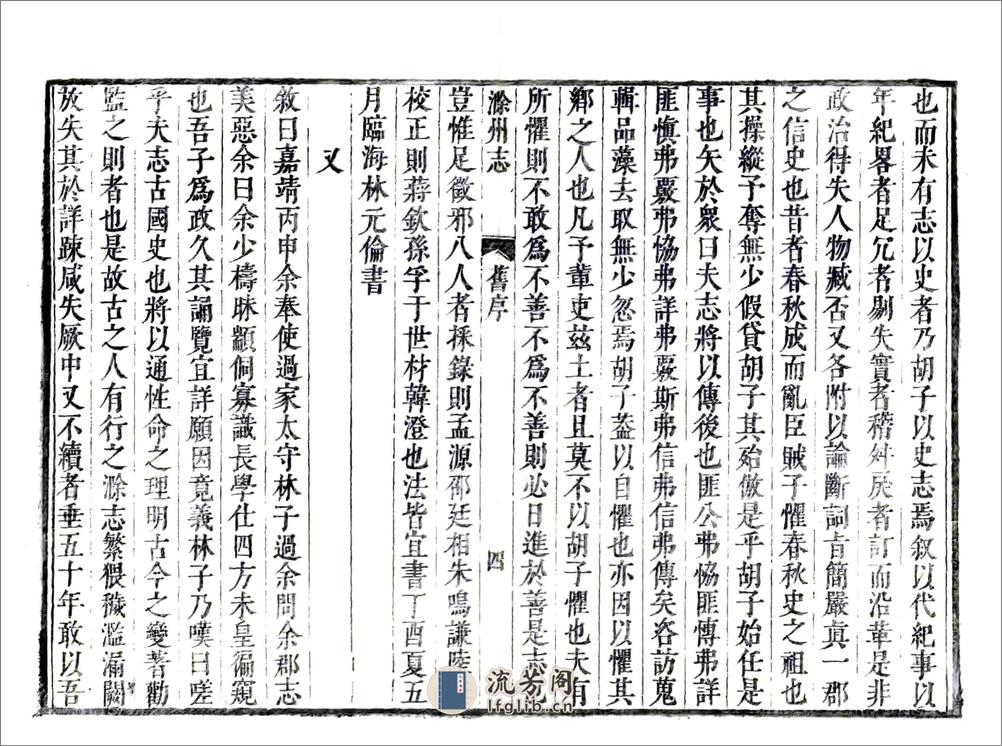 也而未有志以史者乃胡子以史志焉敘以代紀事以
年紀畧者足冗者剔失實者稽舛戾者訂而沿革是非
政治得失人物臧否又各附以論斷詞旨簡嚴真一郡
之信史也昔者春秋成而亂臣賊子懼春秋史之祖也
其操縱予奪無少假貸胡子其殆倣是乎胡子始任是
事也矢於衆曰夫志將以傳後也匪公弗恊匪博弗詳
匪慎弗覈弗恊弗詳弗覈斯弗信弗信弗傳矣咨訪蒐
輯品藻去取無少忽焉胡子葢以自懼也亦因以懼其
鄉之人也凡予輩吏兹土者且莫不以胡子懼也夫有
所懼則不敢爲不善不爲不善則必日進於善是志也
滁州志 舊序 四
豈惟足徵邪八人者採錄則孟源邵廷相朱鳴謙陸
校正則蔣欽孫孚于世材韓澄也法皆宜書丁酉夏五
月臨海林元倫書
又
敘曰嘉靖丙申余奉使過家太守林子過余問余郡志
美惡余曰余少檮昧顓侗寡識長學仕四方未皇徧窺
也吾子爲政久其誦覽宜詳願因竟義林子乃嘆曰嗟
乎夫志古國史也將以通性命之理明古今之變著勸
監之則者也是故古之人有行之滁志繁猥穢濫漏闕
放失其於詳踈咸失厥中又不續者垂五十年敢以吾
流芳阁
lfglib.cn